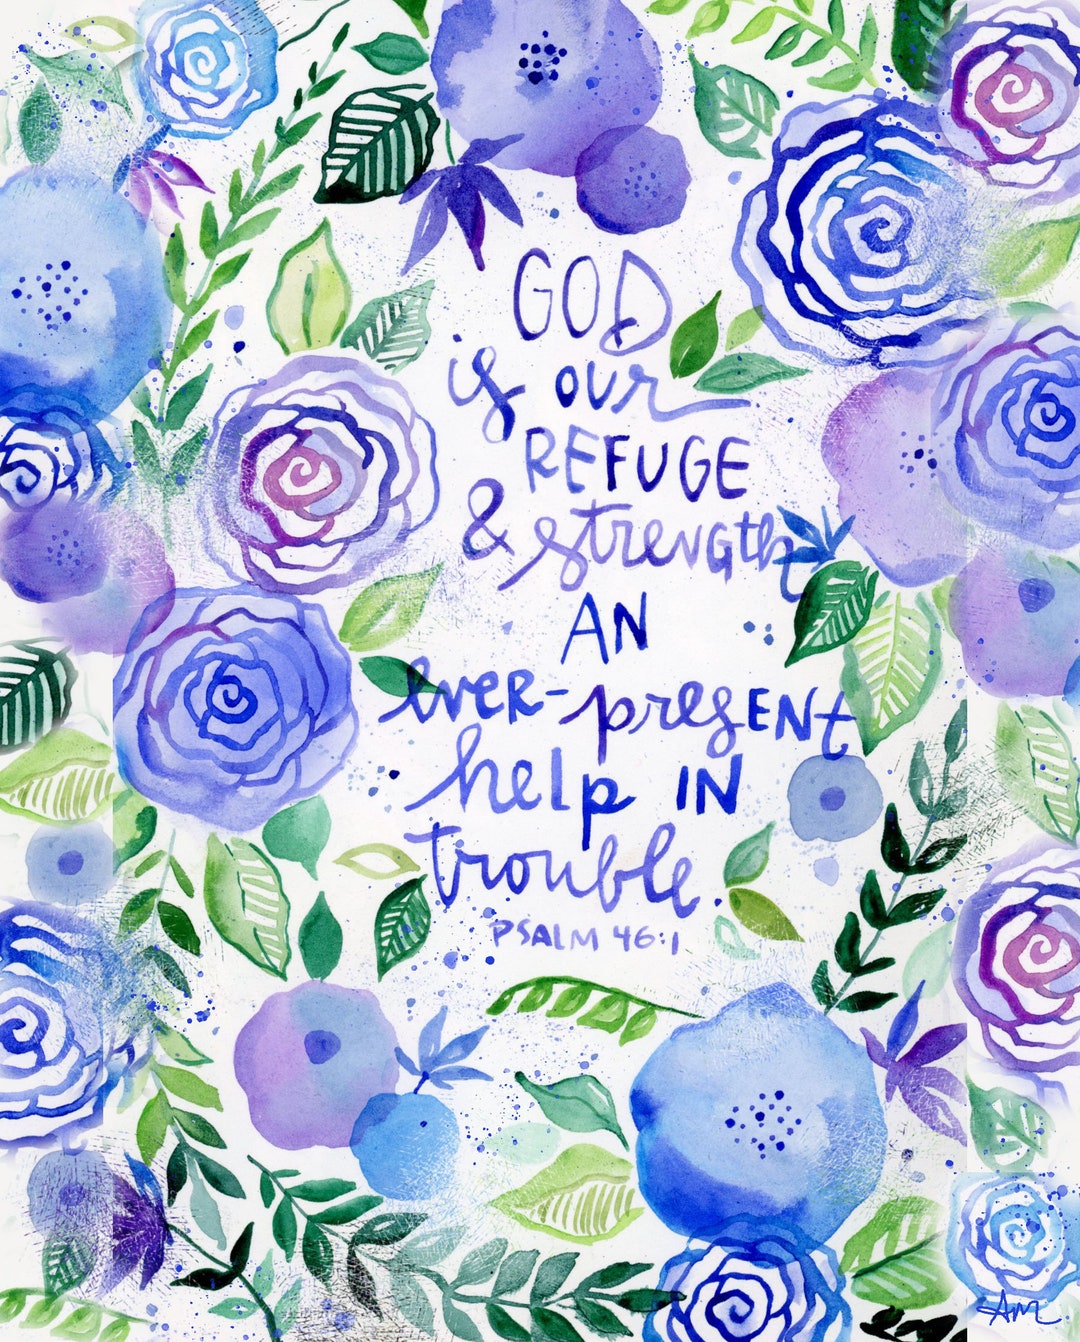 GOD
is our
REFUGE
& strength
AN
ever-present
help IN
trouble
PSALM 46:1
AM